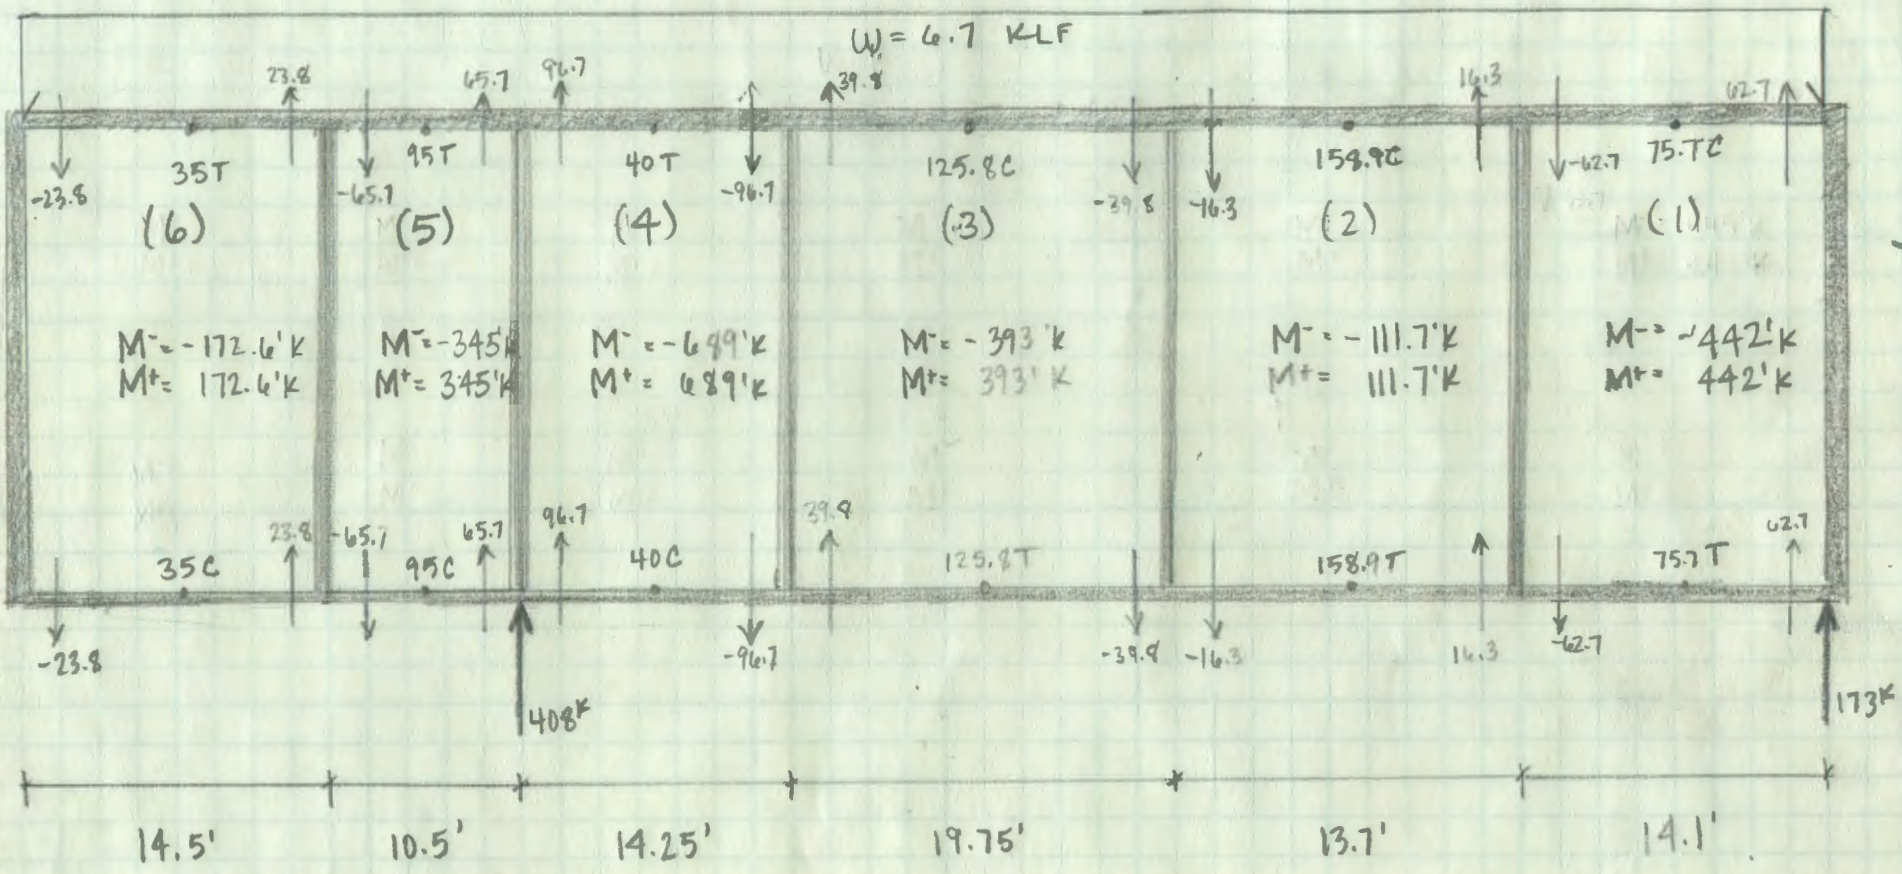 W = 6.7 KLF
23.8 65.7 96.7 39.8 16.3 62.7
35T 95T 40T 125.8C 158.9C 75.7C
-23.8 -65.7 -96.7 -39.8 -16.3 -62.7
(6) (5) (4) (3) (2) (1)
M⁻= -172.6'K M⁻= -345'K M⁻ = -689'K M⁻= -393'K M⁻ = -111.7'K M⁻= -442'K
M⁺= 172.6'K M⁺= 345'K M⁺ = 689'K M⁺= 393'K M⁺= 111.7'K M⁺= 442'K
23.8 -65.7 65.7 96.7 39.8 62.7
35C 95C 40C 125.8T 158.9T 75.7T
-23.8 -96.7 -39.8 -16.3 16.3 -62.7
408ᴷ 173ᴷ
14.5' 10.5' 14.25' 19.75' 13.7' 14.1'